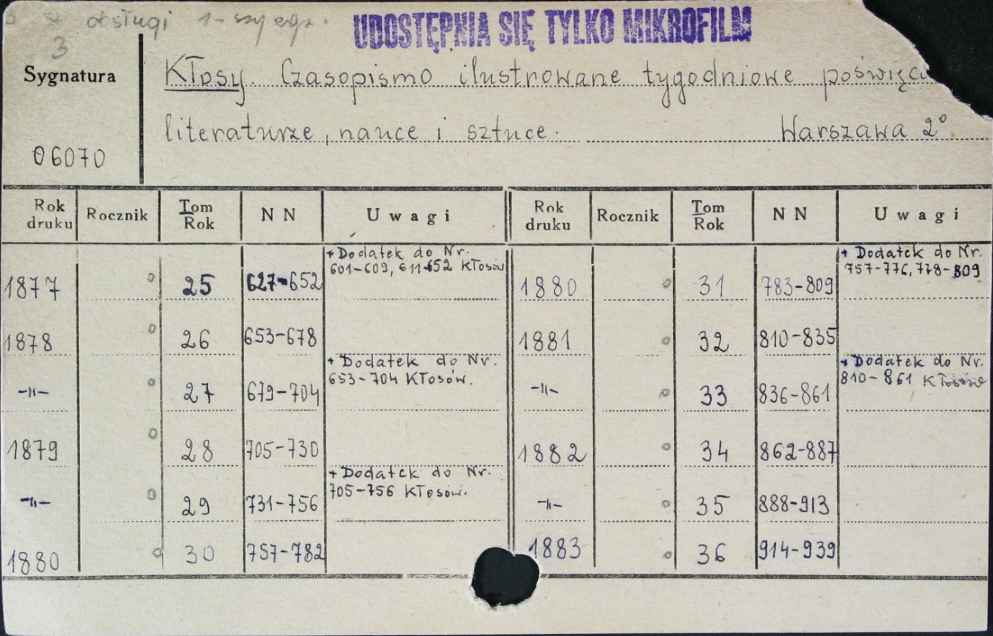 obsługi 1-szy egz.
UDOSTĘPNIA SIĘ TYLKO MIKROFILM
3
Sygnatura
06070
Kłosy. Czasopismo ilustrowane tygodniowe
literaturze, nauce i sztuce. Warszawa 2°.
Rok druku Rocznik Tom Rok N N Uwagi Rok druku Rocznik Tom Rok N N Uwagi
1877 o 25 627-652 + Dodatek do Nr. 601-609, 611-652 Kłosów 1880 o 31 783-809 + Dodatek do Nr. 757-776, 778-809
1878 o 26 653-678 1881 o 32 810-835
-"- o 27 679-704 + Dodatek do Nr. 653-704 Kłosów. -"- o 33 836-861 + Dodatek do Nr. 810-861 Kłosów
1879 o 28 705-730 1882 o 34 862-887
-"- o 29 731-756 + Dodatek do Nr. 705-756 Kłosów. -"- o 35 888-913
1880 o 30 757-782 1883 o 36 914-939